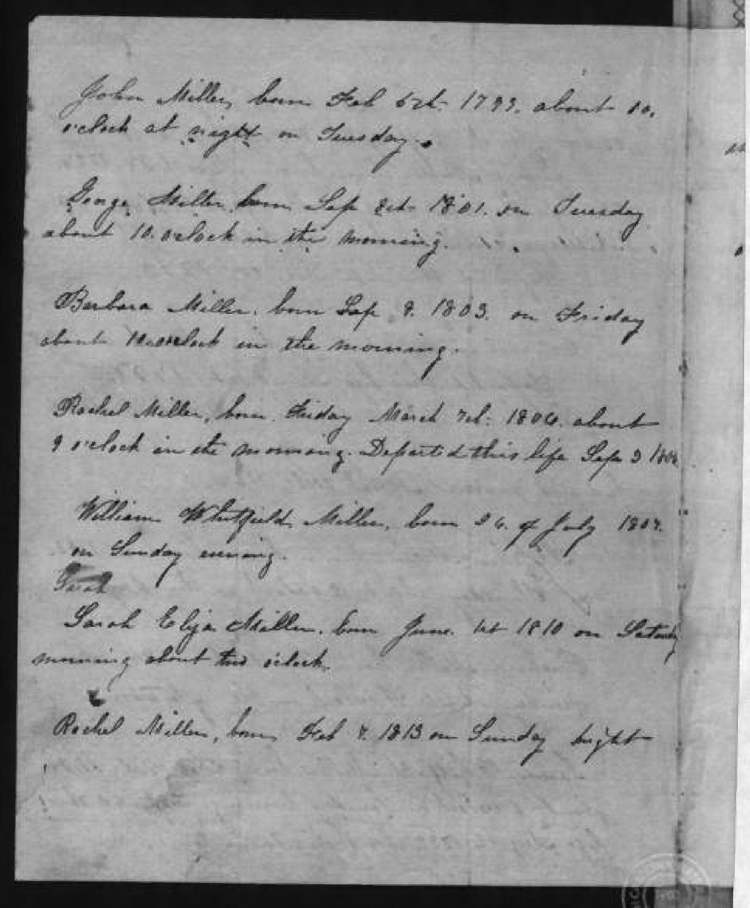 John Miller, born Feb 5th. 1799. about 10.
o'clock at night on Tuesday.
George Miller born Sep 8th 1801. on Tuesday
about 10. o'clock in the morning.
Barbara Miller. born Sep 9. 1803. on Friday
about 10 o'clock in the morning.
Rachel Miller, born Friday March 7th. 1806. about
9 o'clock in the morning. Departed this life Sep 3 1806
William Whitfield Miller, born 26. of July 1807.
on Sunday evening.
Sarah
Sarah Eliza Miller. born June. 1810 on Saturday
morning about two o'clock.
Rachel Miller, born Feb 7. 1813 on Sunday night